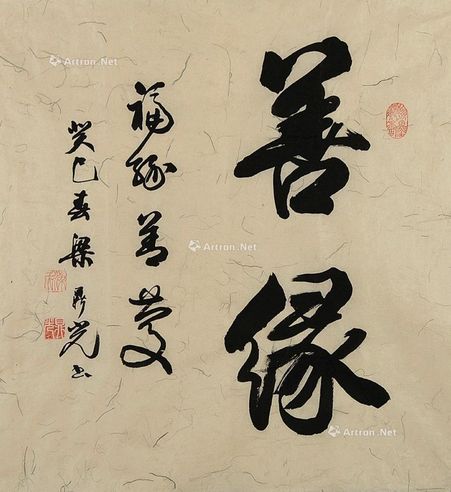 善缘
福缘善庆
癸巳春梁
书
Artron.Net
Artron.Net
Artron.Net